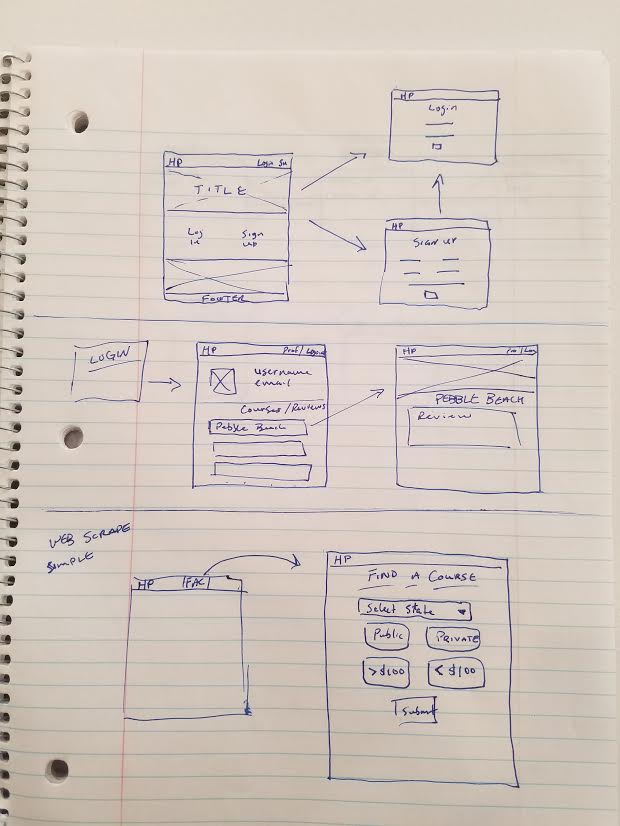 HP
Login
HP Login Su
TITLE
Log in
Sign up
FOOTER
HP
Sign up
LOGIN
HP Prof/Logout
username
email
Courses/Reviews
Pebble Beach
HP Pro/Log
PEBBLE BEACH
Review
WEB SCRAPE
SIMPLE
HP FAC
HP
FIND A COURSE
Select State
Public PRIVATE
>$100 <$100
Submit